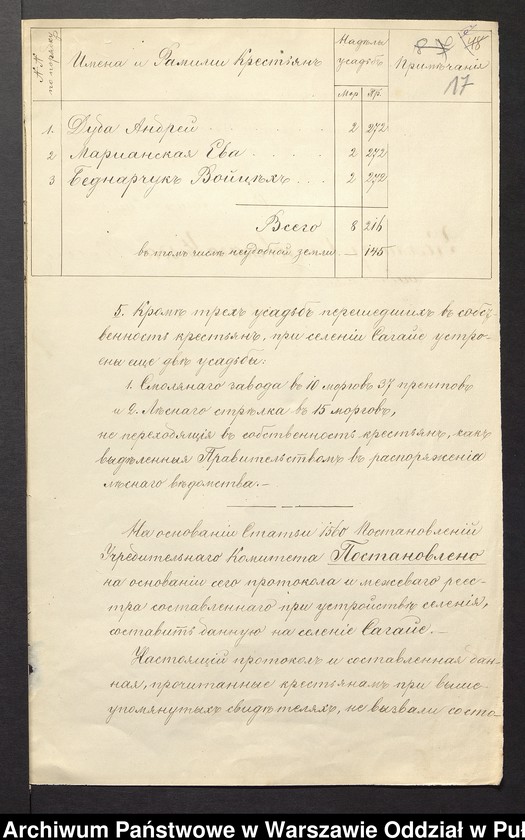 №№ по порядку
Имена и Фамилiи Крестьянъ
Надѣлъ усадьбъ
Мор. Пр.
Примѣчанiя
48
17
1. Дуба Андрей 2 272
2 Марианская Ева 2 272
3 Беднарчукъ Войцѣхъ 2 272
Всего 8 216
въ томъ числѣ неудобной земли — 145
5. Кромѣ трехъ усадьбъ перешедшихъ въ собст-
венность крестьянъ, при селенiи Сагайе устро-
ены еще двѣ усадьбы:
1. Смолянаго завода въ 10 морговъ 37 прентовъ
и 2. Лѣснаго стрѣлка въ 15 морговъ,
не переходящiя въ собственность крестьянъ, какъ
выдѣленныя Правительствомъ въ распоряженiя
лѣснаго вѣдомства. —
На основанiи Статьи 1560 Постановленiй
Учредительнаго Комитета Постановлено
на основанiи сего протокола и межеваго реес-
тра составленнаго при устройствѣ селенiя,
составить данную на селенiе Сагайе. —
Настоящiй протоколъ и составленная дан-
ная, прочитанные крестьянамъ при выше-
упомянутыхъ свидѣтеляхъ, не вызвали со сто-
Archiwum Państwowe w Warszawie Oddział w Puł